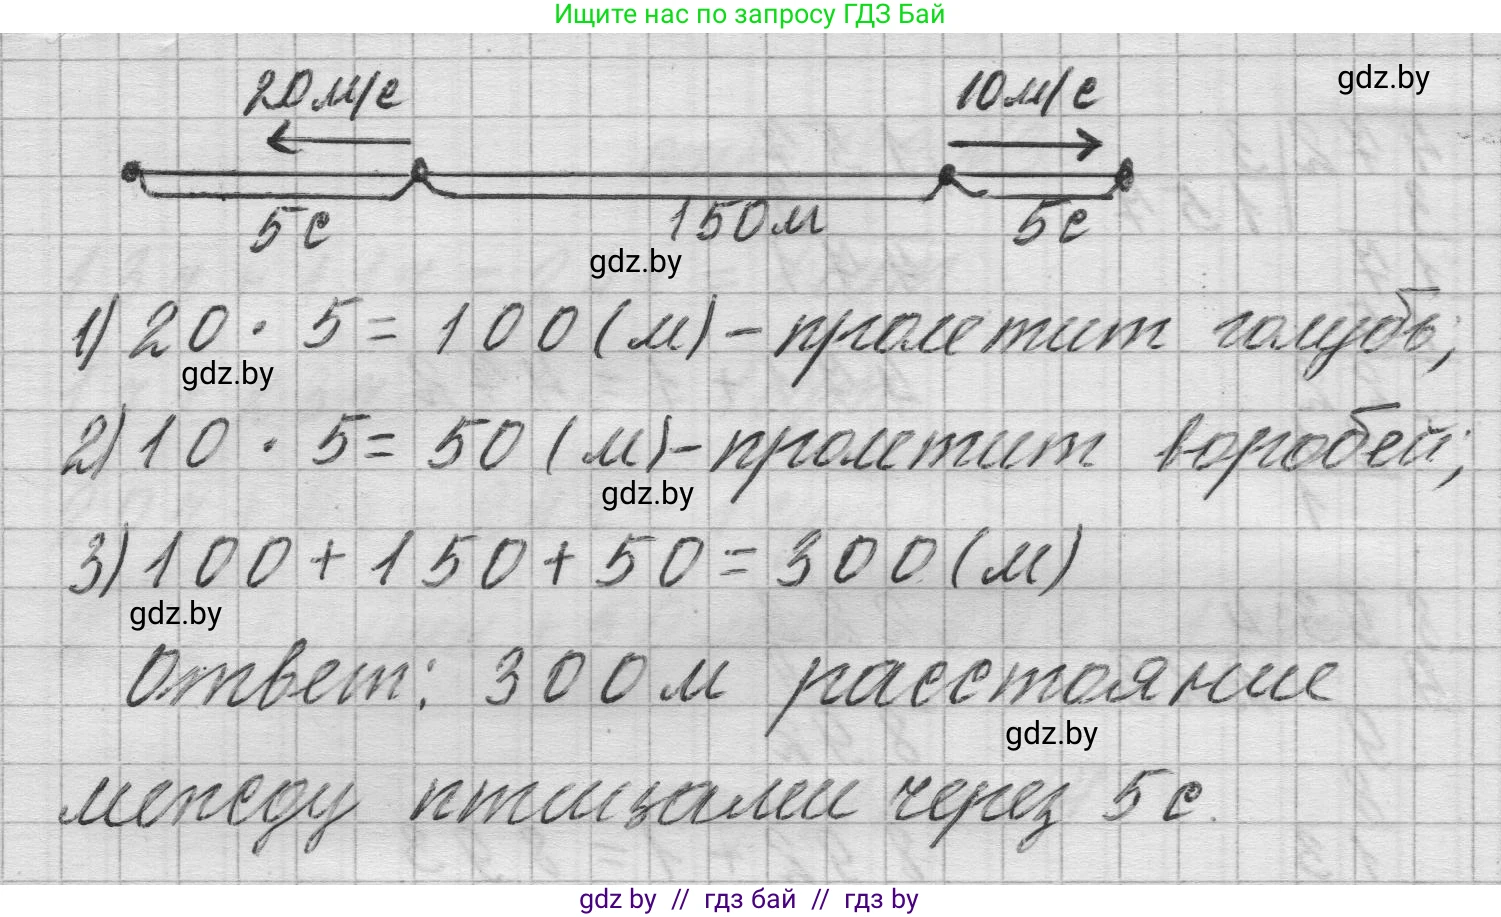 Ищите нас по запросу ГДЗ Бай
20м/с 10м/с
gdz.by
5с 150м 5с
gdz.by
1) 20 · 5 = 100 (м) - пролетит голубь;
gdz.by
2) 10 · 5 = 50 (м) - пролетит воробей;
gdz.by
3) 100 + 150 + 50 = 300 (м)
gdz.by
Ответ: 300м расстояние
gdz.by
между птицами через 5с.
gdz by // гдз бай // гдз by